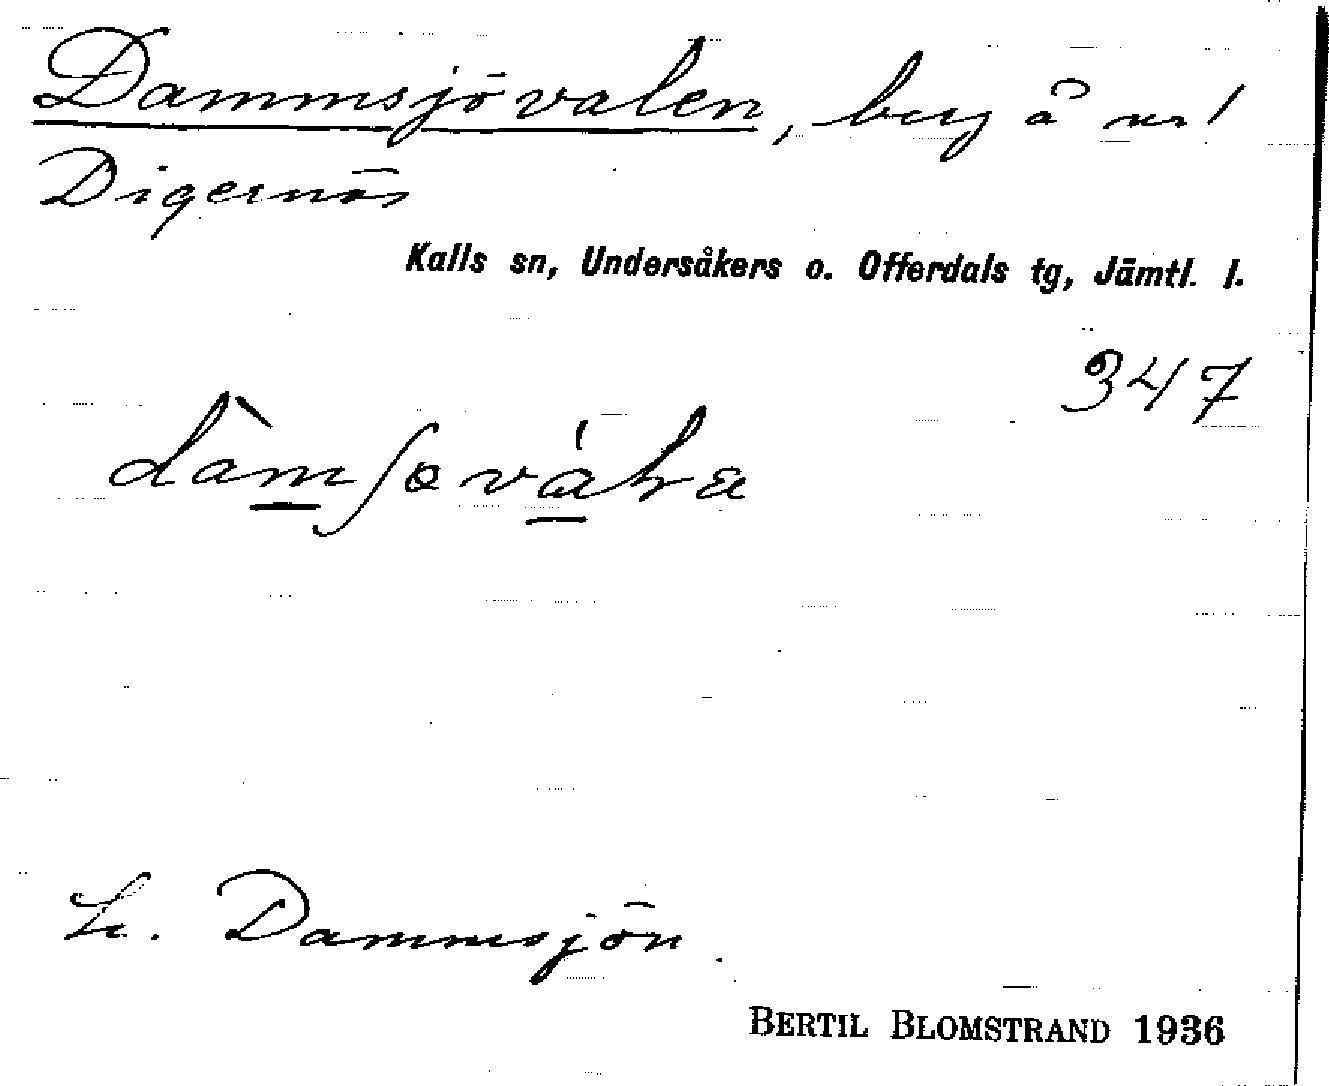 Dammsjövalen, berg å nr 1
Digernäs
Kalls sn, Undersåkers o. Offerdals tg, Jämtl. l.
347
St. Dammsjön.
BERTIL BLOMSTRAND 1936